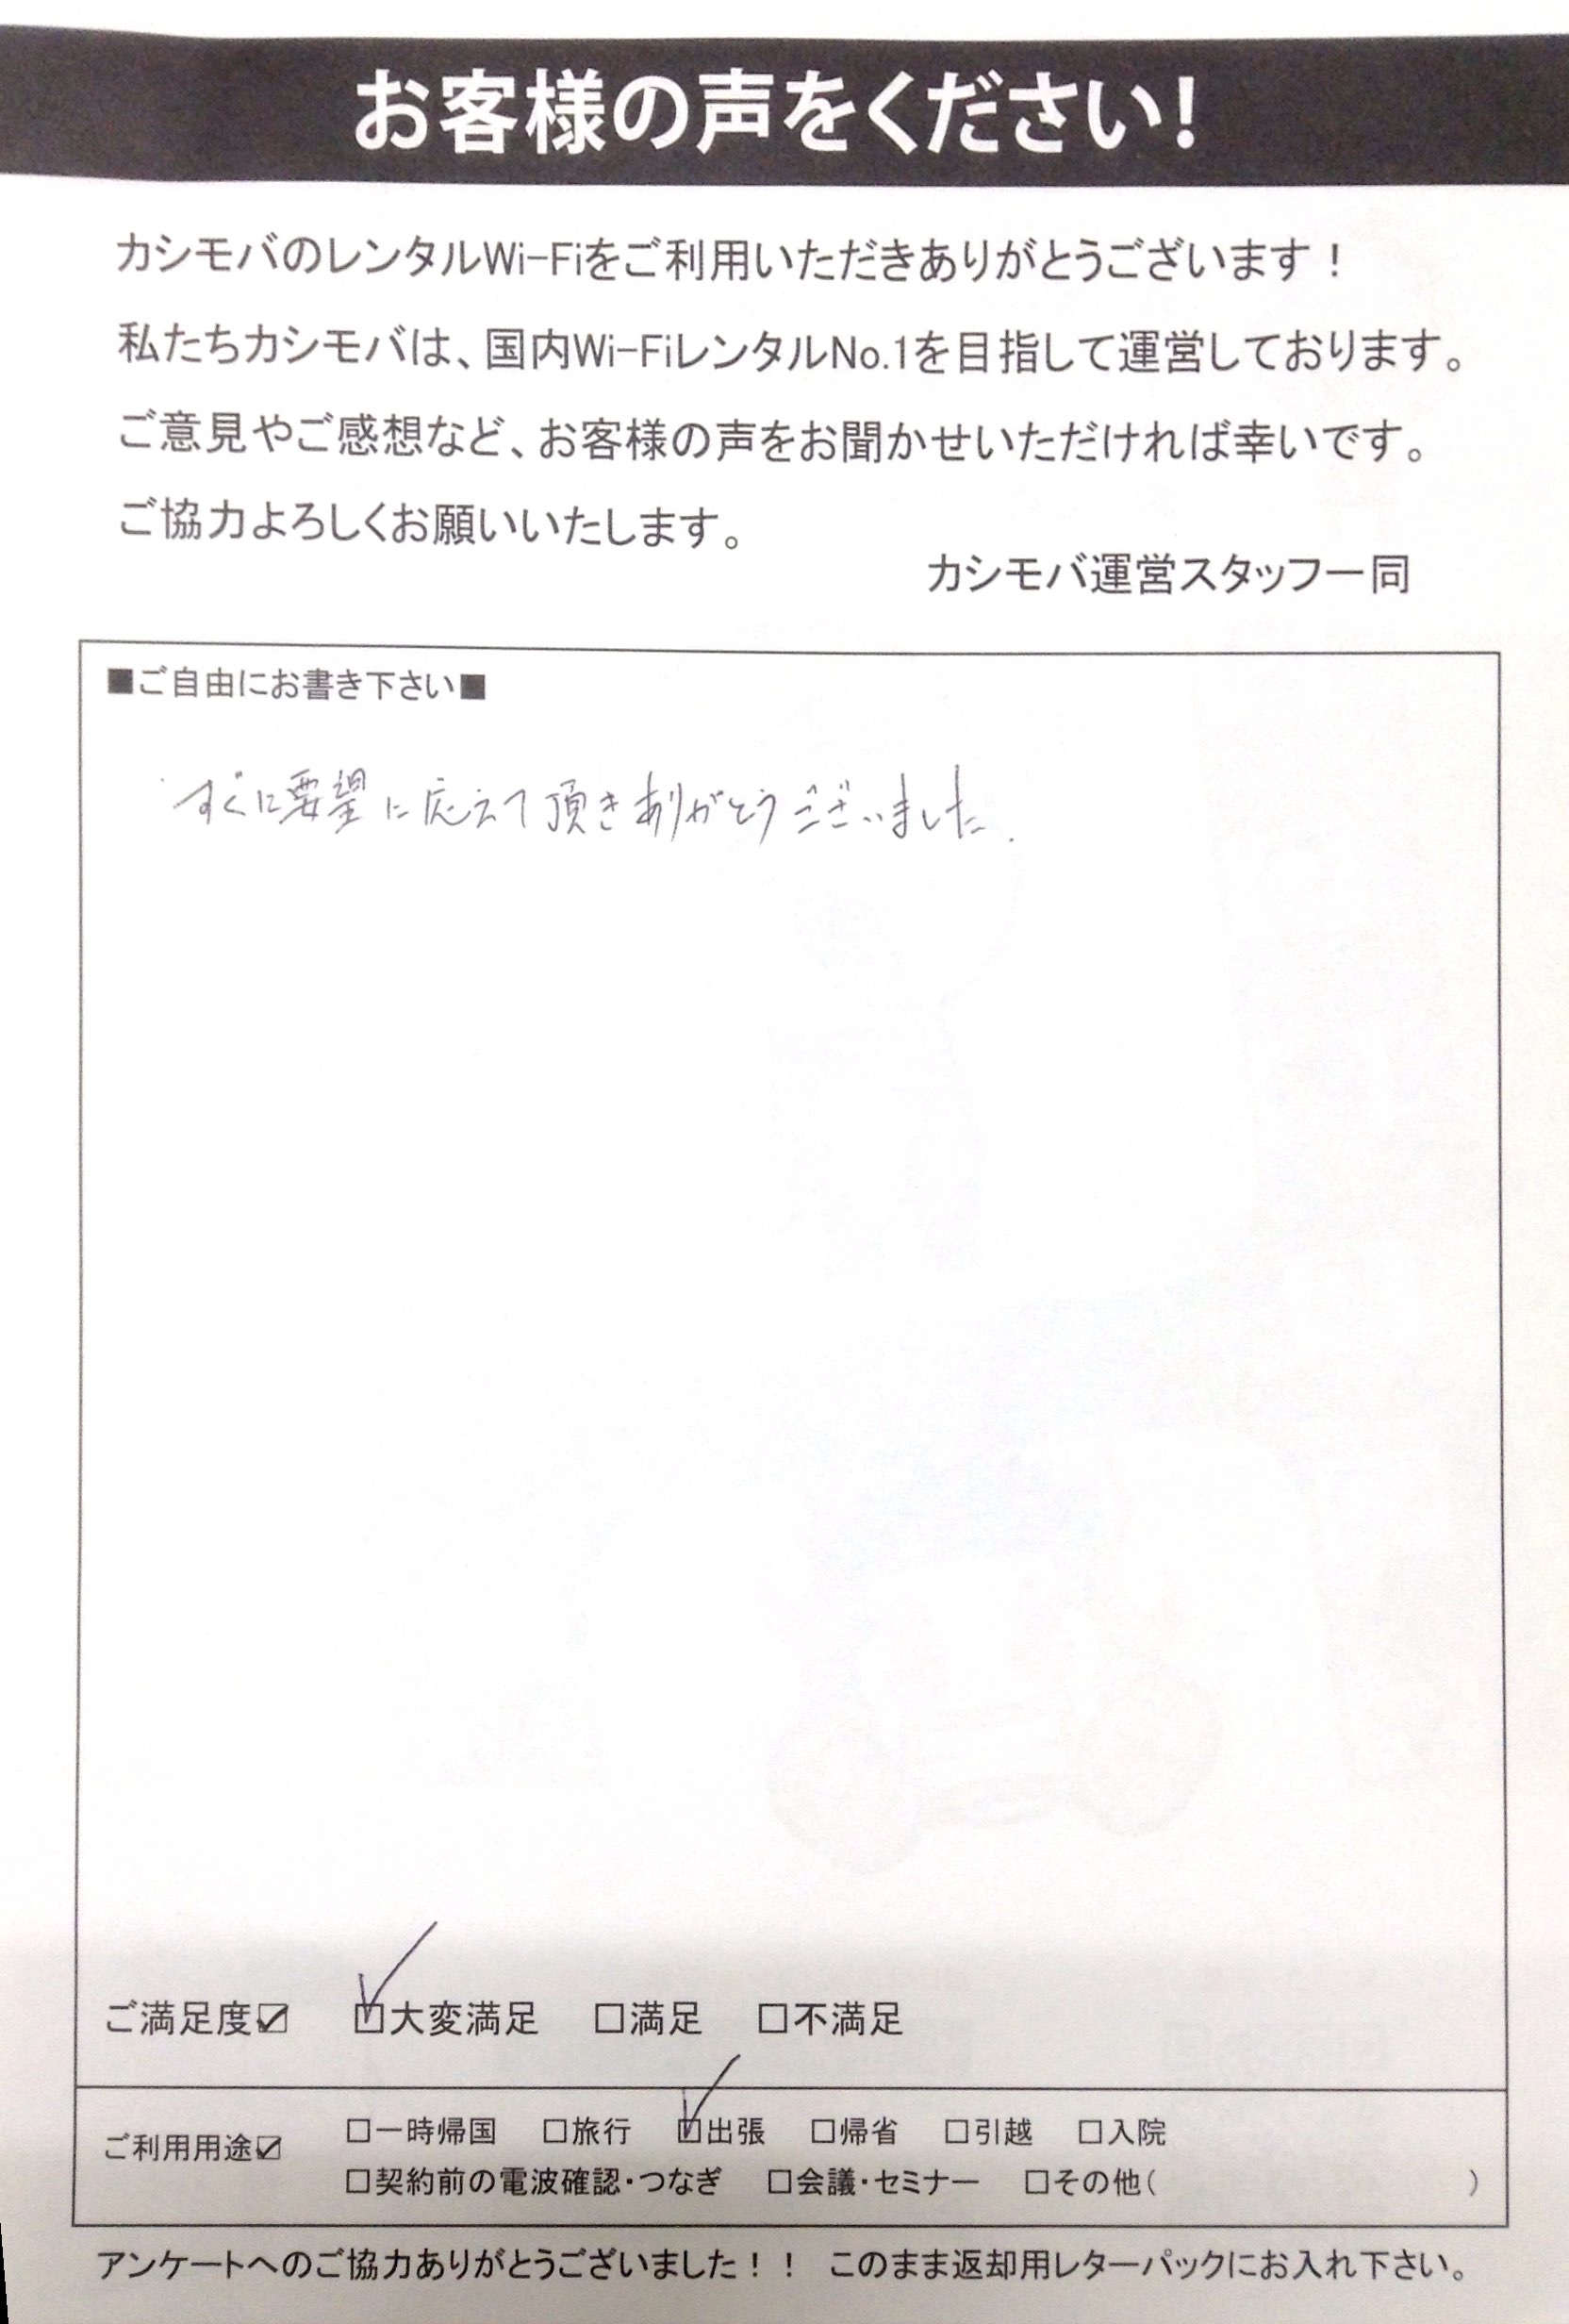 お客様の声をください!
カシモバのレンタルWi-Fiをご利用いただきありがとうございます！
私たちカシモバは、国内Wi-FiレンタルNo.1を目指して運営しております。
ご意見やご感想など、お客様の声をお聞かせいただければ幸いです。
ご協力よろしくお願いいたします。
カシモバ運営スタッフ一同
■ご自由にお書き下さい■
すぐに要望に応えて頂きありがとうございました.
ご満足度☑ ☑大変満足 □満足 □不満足
ご利用用途☑ □一時帰国 □旅行 ☑出張 □帰省 □引越 □入院
□契約前の電波確認・つなぎ □会議・セミナー □その他( )
アンケートへのご協力ありがとうございました！！ このまま返却用レターパックにお入れ下さい。